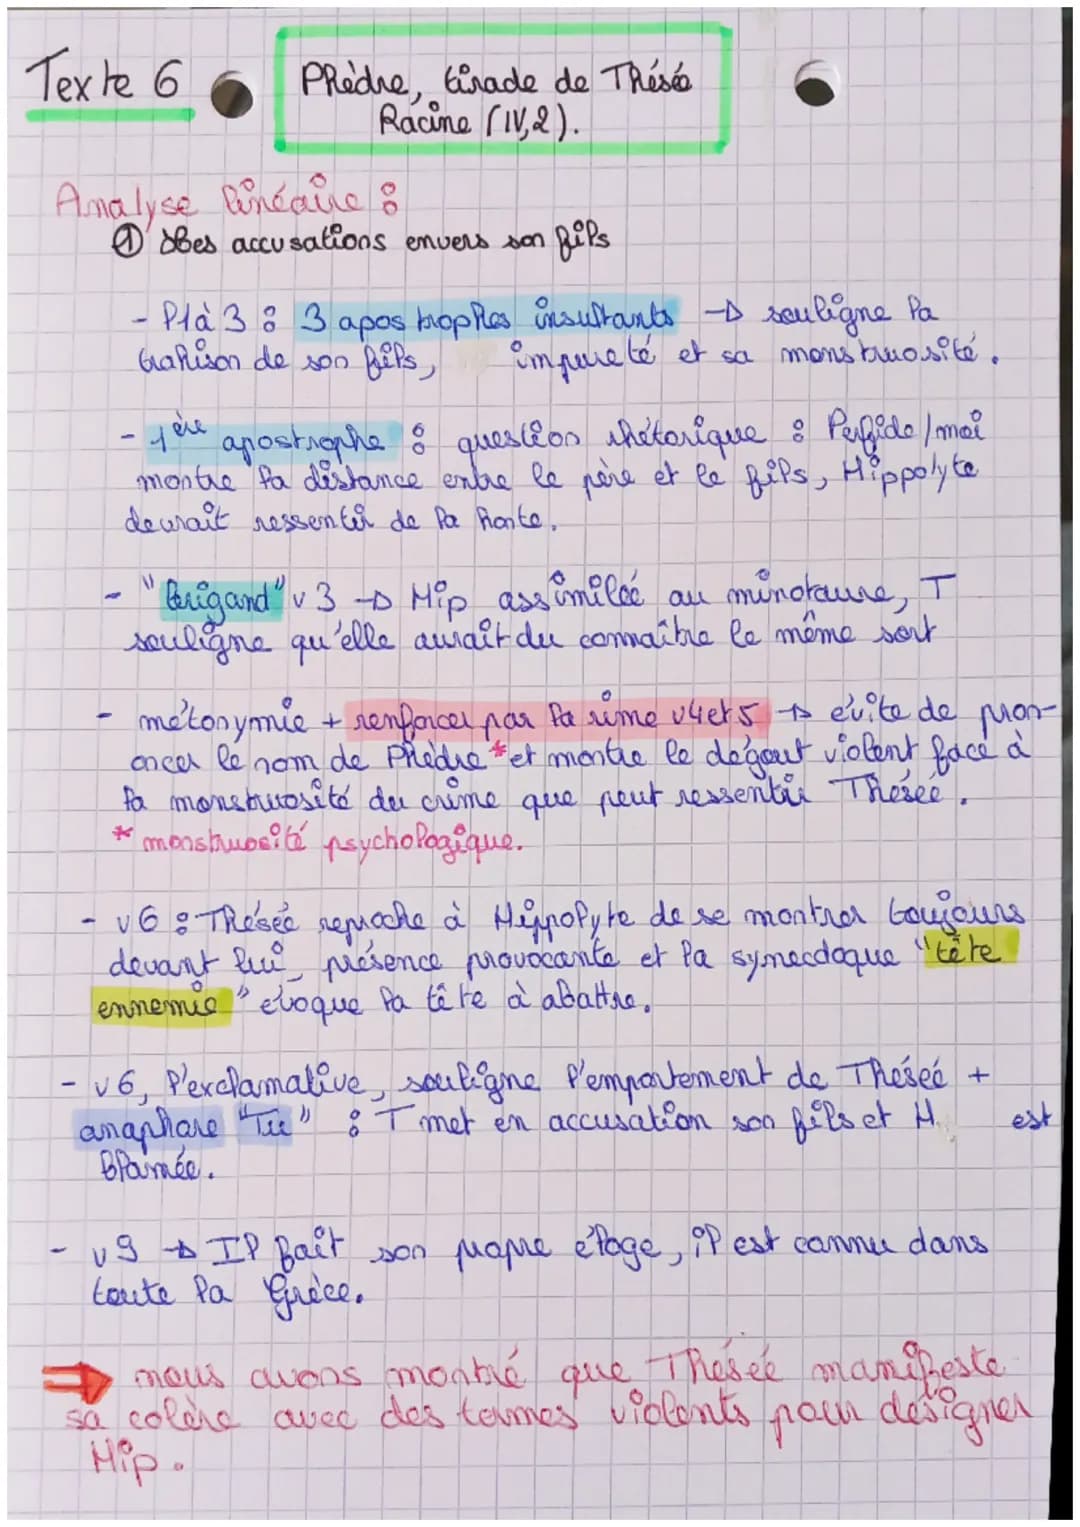 Texte 6
Phèdre, tirade de Thésée
Racine (IV,2).
Analyse linéaire :
① Des accusations envers son fils
- P1à 3 : 3 apostrophes insultants → souligne la
trahison de son fils, impureté et sa monstruosité.
- 1ère apostrophe : question rhétorique : Perfide/moi
montre la distance entre le père et le fils, Hippolyte
devrait ressentir de la honte.
- "Brigand" v 3 → Hip assimilée au minotaure, T
souligne qu'elle aurait du connaître le même sort
- métonymie + renforcer par la rime v4et 5 → évite de pron-
oncer le nom de Phèdre * et montre le dégout violent face à
la monstruosité du crime que peut ressentir Thésée.
* monstruosité psychologique.
- v6 : Thésée reproche à Hippolyte de se montrer toujours
devant lui, présence provocante et la synecdoque "tête
ennemie" évoque la tête à abattre.
- v6, l'exclamative, souligne l'emportement de Thésée +
anaphore "Tu" : T met en accusation son fils et H. est
blamée.
- v9 → Il fait son propre éloge, il est connu dans
toute la Grèce.
⇒ nous avons montré que Thésée manifeste
sa colère avec des termes violents pour désigner
Hip.